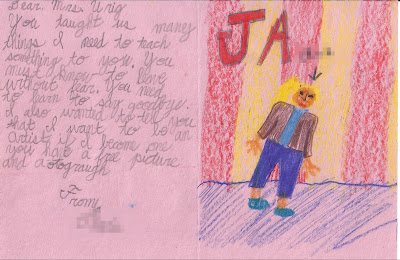 Dear Mrs. Urig
You taught us maney
things I need to teach
something to you. You
must know to live
without fear. You need
to learn to say goodbye.
I also wanted to tell you
that I want to be an
artist if I become one
you hat a free picture
and autograugh
From,
JA